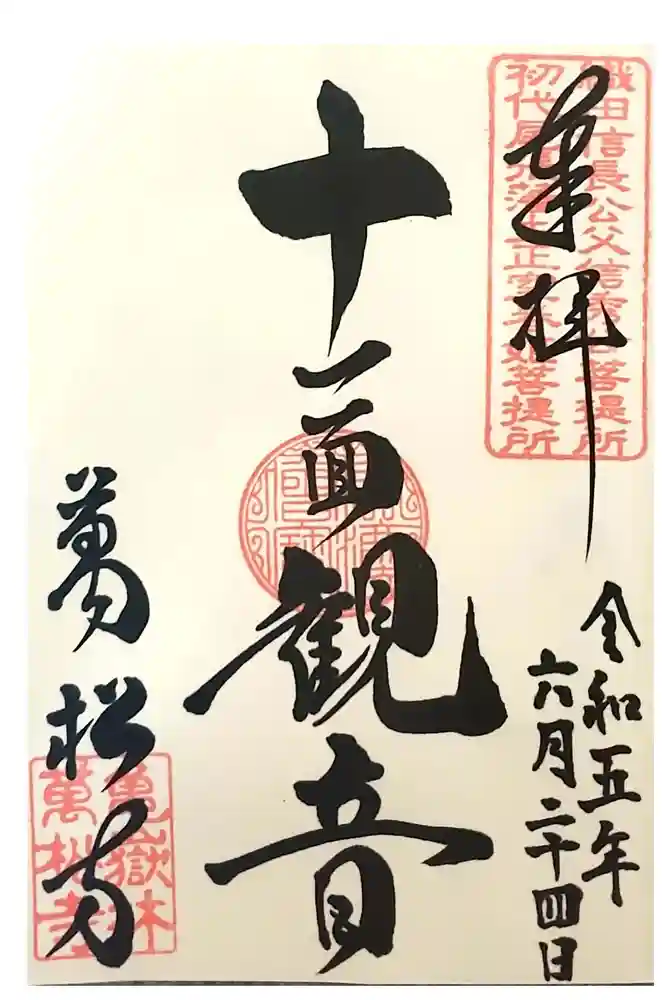 織田信長公父信秀公菩提所
初代尾張藩主正室春姫菩提所
奉拝
令和五年
六月二十四日
十一面観音
萬松寺
亀嶽林
萬松寺